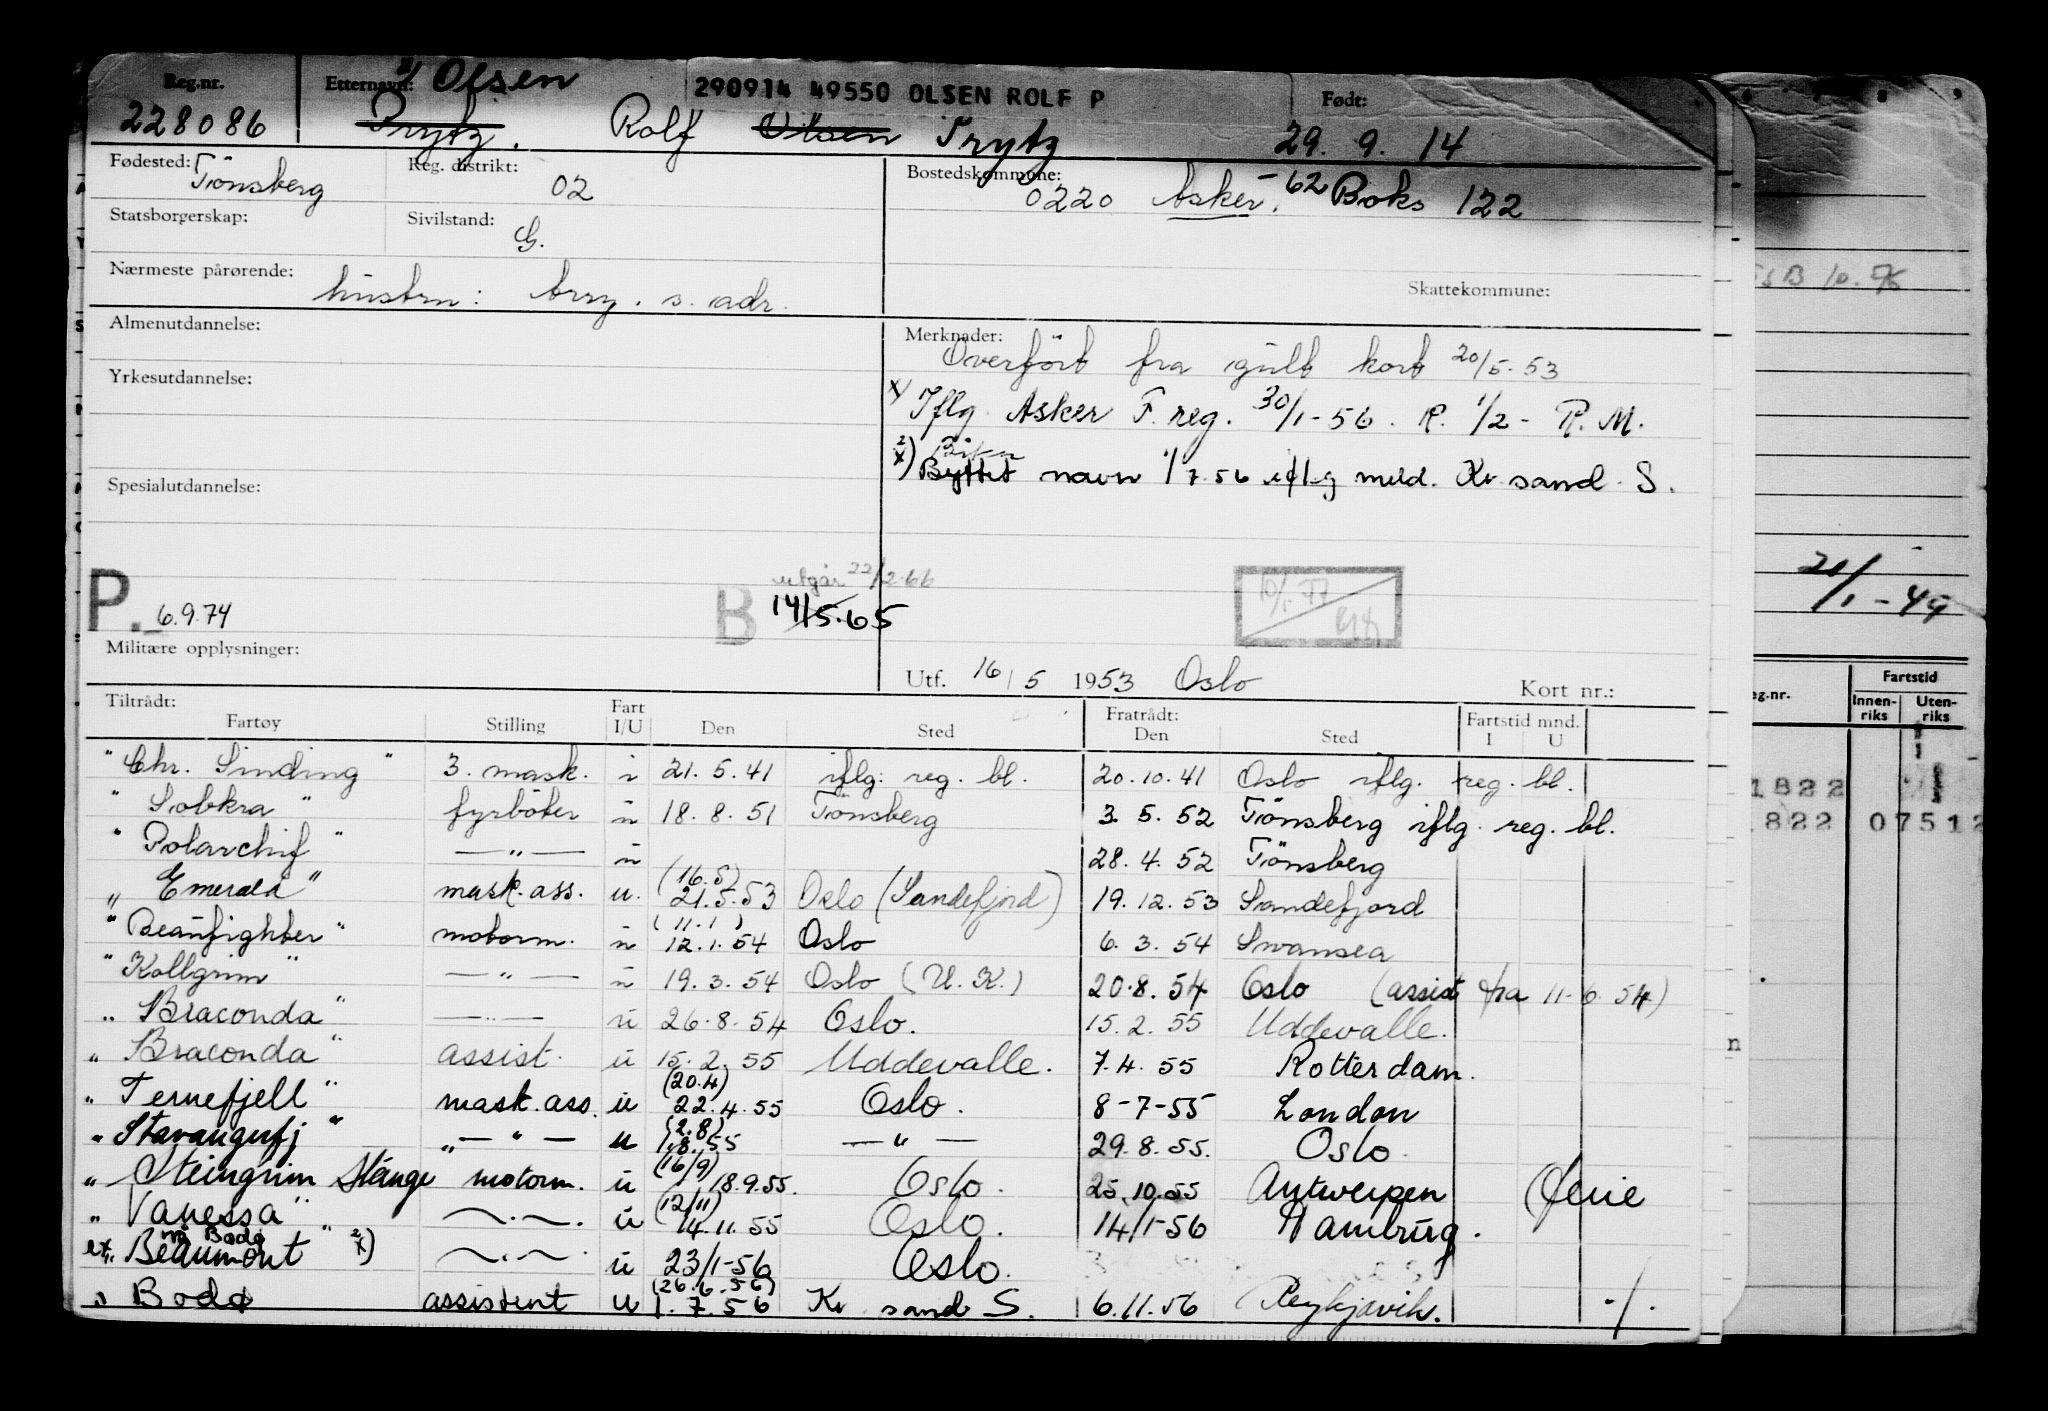 Reg.nr. Etternavn: Olsen 290914 49550 OLSEN ROLF P Født:
228086 Prytz. Rolf Olsen Prytz 29. 9. 14
Fødested: Tönsberg Reg. distrikt: 02 Bostedskommune: 0220 Asker. -62 Boks 122
Statsborgerskap: Sivilstand: G.
Nærmeste pårørende: hustru: s. adr. Skattekommune:
Almenutdannelse: Merknader: Overfört fra gult kort 20/5-53
Yrkesutdannelse: x) Iflg. Asker F.reg. 30/1-56. R. 1/2- R.M.
Spesialutdannelse: 2x) Båten Byttet navn 1/7.56 iflg meld. Kr.sand S.
utgår 22/2-66
P. 6.9.74 B 14/5.65 10/1-77
Militære opplysninger: Utf. 16/5 1953 Oslo Kort nr.:
Tiltrådt: Fart Fratrådt: Fartstid mnd.
Fartøy Stilling I/U Den Sted Den Sted I U
"Chr. Sinding" 3. mask. i 21.5.41 iflg. reg. bl. 20.10.41 Oslo iflg. reg. bl.
"Solkra" fyrböter u 18.8.51 Tönsberg 3.5.52 Tönsberg iflg. reg. bl.
"Polarchif" —"— u 28.4.52 Tönsberg
"Emerald" mask.ass. u. (16.5) 21.5.53 Oslo (Sandefjord) 19.12.53 Sandefjord
"Beaufighter" motorm. u (11.1) 12.1.54 Oslo 6.3.54 Swansea
"Kollgrim" —"— u 19.3.54 Oslo (U.K.) 20.8.54 Oslo (assist fra 11-6.54)
"Braconda" —"— u 26.8.54 Oslo. 15.2.55 Uddevalle.
"Braconda" assist. u 15.2.55 Uddevalle. 7.4.55 Rotterdam.
"Ternefjell" mask.ass. u (20.4) 22.4.55 Oslo. 8-7-55 London
"Stavangerfj" "—"— u (2.8) 1.8.55 —"— 29.8.55. Oslo.
"Steingrim Slänge motorm. u (16/9) 18.9.55. Oslo. 25.10.55 Antwerpen
"Vanessa" —"—. u (12/11) 14.11.55 Oslo. 14/1-56 Hamburg.
nå Bodø
ex. "Beaumont" 2x) —"— u 23/1-56 Oslo.
"Bodø assistent u (26.6.56) 1.7.56 Kr sand S. 6.11.56 Reykjavik. ./.
SB 10.
21/1-49
eg.nr. Fartstid
Innen-riks Uten-riks
1822
822 07512